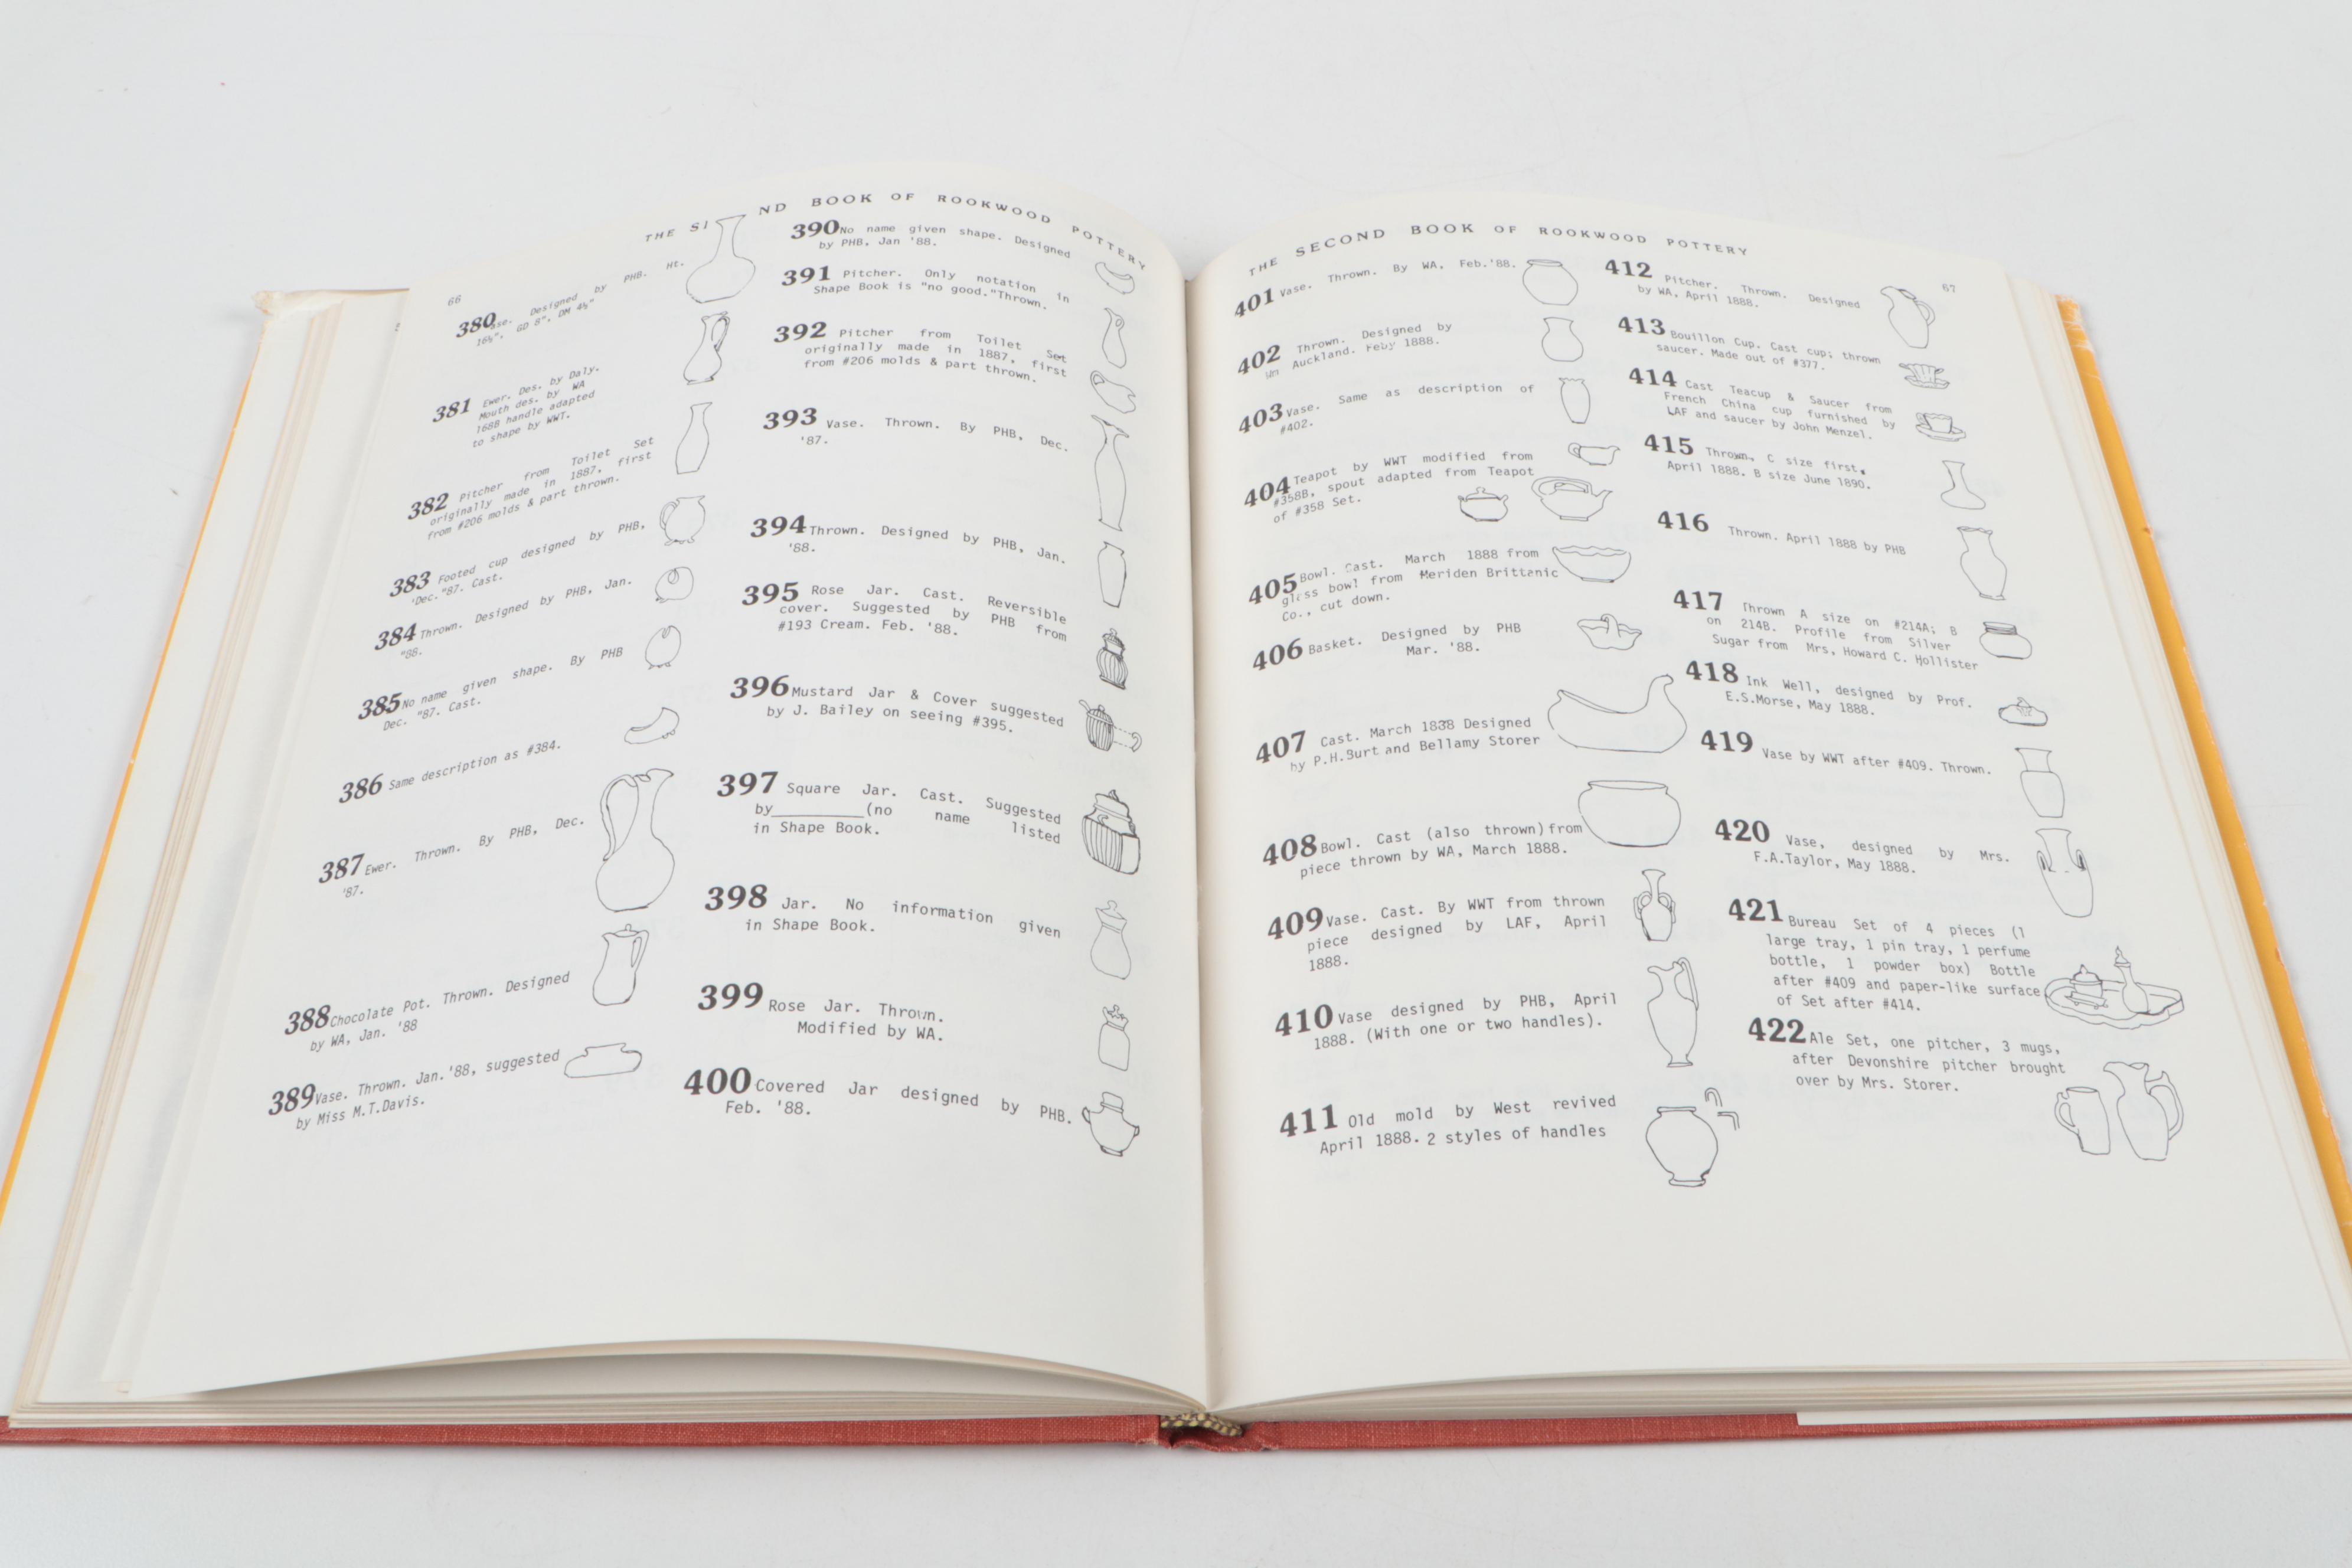 66
THE SE ND BOOK OF ROOKWOOD POTTERY
380 ase. Designed by PHB. Ht.
16½", GD 8", DM 4½"
381 Ewer. Des. by Daly.
Mouth des. by WA
168B handle adapted
to shape by WWT.
382 Pitcher from Toilet Set
originally made in 1887, first
from #206 molds & part thrown.
383 Footed cup designed by PHB,
'Dec."87. Cast.
384 Thrown. Designed by PHB, Jan.
"88.
385 No name given shape. By PHB
Dec. "87. Cast.
386 Same description as #384.
387 Ewer. Thrown. By PHB, Dec.
'87.
388 Chocolate Pot. Thrown. Designed
by WA, Jan. '88
389 Vase. Thrown. Jan.'88, suggested
by Miss M.T.Davis.
390 No name given shape. Designed
by PHB, Jan '88.
391 Pitcher. Only notation in
Shape Book is "no good."Thrown.
392 Pitcher from Toilet Set
originally made in 1887, first
from #206 molds & part thrown.
393 Vase. Thrown. By PHB, Dec.
'87.
394 Thrown. Designed by PHB, Jan.
'88.
395 Rose Jar. Cast. Reversible
cover. Suggested by PHB from
#193 Cream. Feb. '88.
396 Mustard Jar & Cover suggested
by J. Bailey on seeing #395.
397 Square Jar. Cast. Suggested
by__________(no name listed
in Shape Book.
398 Jar. No information given
in Shape Book.
399 Rose Jar. Thrown.
Modified by WA.
400 Covered Jar designed by PHB.
Feb. '88.
THE SECOND BOOK OF ROOKWOOD POTTERY
67
401 Vase. Thrown. By WA, Feb.'88.
402 Thrown. Designed by
Wm Auckland. Feby 1888.
403 Vase. Same as description of
#402.
404 Teapot by WWT modified from
#358B, spout adapted from Teapot
of #358 Set.
405 Bowl. Cast. March 1888 from
glass bowl from Meriden Brittanic
Co., cut down.
406 Basket. Designed by PHB
Mar. '88.
407 Cast. March 1888 Designed
by P.H.Burt and Bellamy Storer
408 Bowl. Cast (also thrown)from
piece thrown by WA, March 1888.
409 Vase. Cast. By WWT from thrown
piece designed by LAF, April
1888.
410 Vase designed by PHB, April
1888. (With one or two handles).
411 Old mold by West revived
April 1888. 2 styles of handles
412 Pitcher. Thrown. Designed
by WA, April 1888.
413 Bouillon Cup. Cast cup; thrown
saucer. Made out of #377.
414 Cast Teacup & Saucer from
French China cup furnished by
LAF and saucer by John Menzel.
415 Thrown, C size first,
April 1888. B size June 1890.
416 Thrown. April 1888 by PHB
417 Thrown A size on #214A; B
on 214B. Profile from Silver
Sugar from Mrs, Howard C. Hollister
418 Ink Well, designed by Prof.
E.S.Morse, May 1888.
419 Vase by WWT after #409. Thrown.
420 Vase, designed by Mrs.
F.A.Taylor, May 1888.
421 Bureau Set of 4 pieces (1
large tray, 1 pin tray, 1 perfume
bottle, 1 powder box) Bottle
after #409 and paper-like surface
of Set after #414.
422 Ale Set, one pitcher, 3 mugs,
after Devonshire pitcher brought
over by Mrs. Storer.